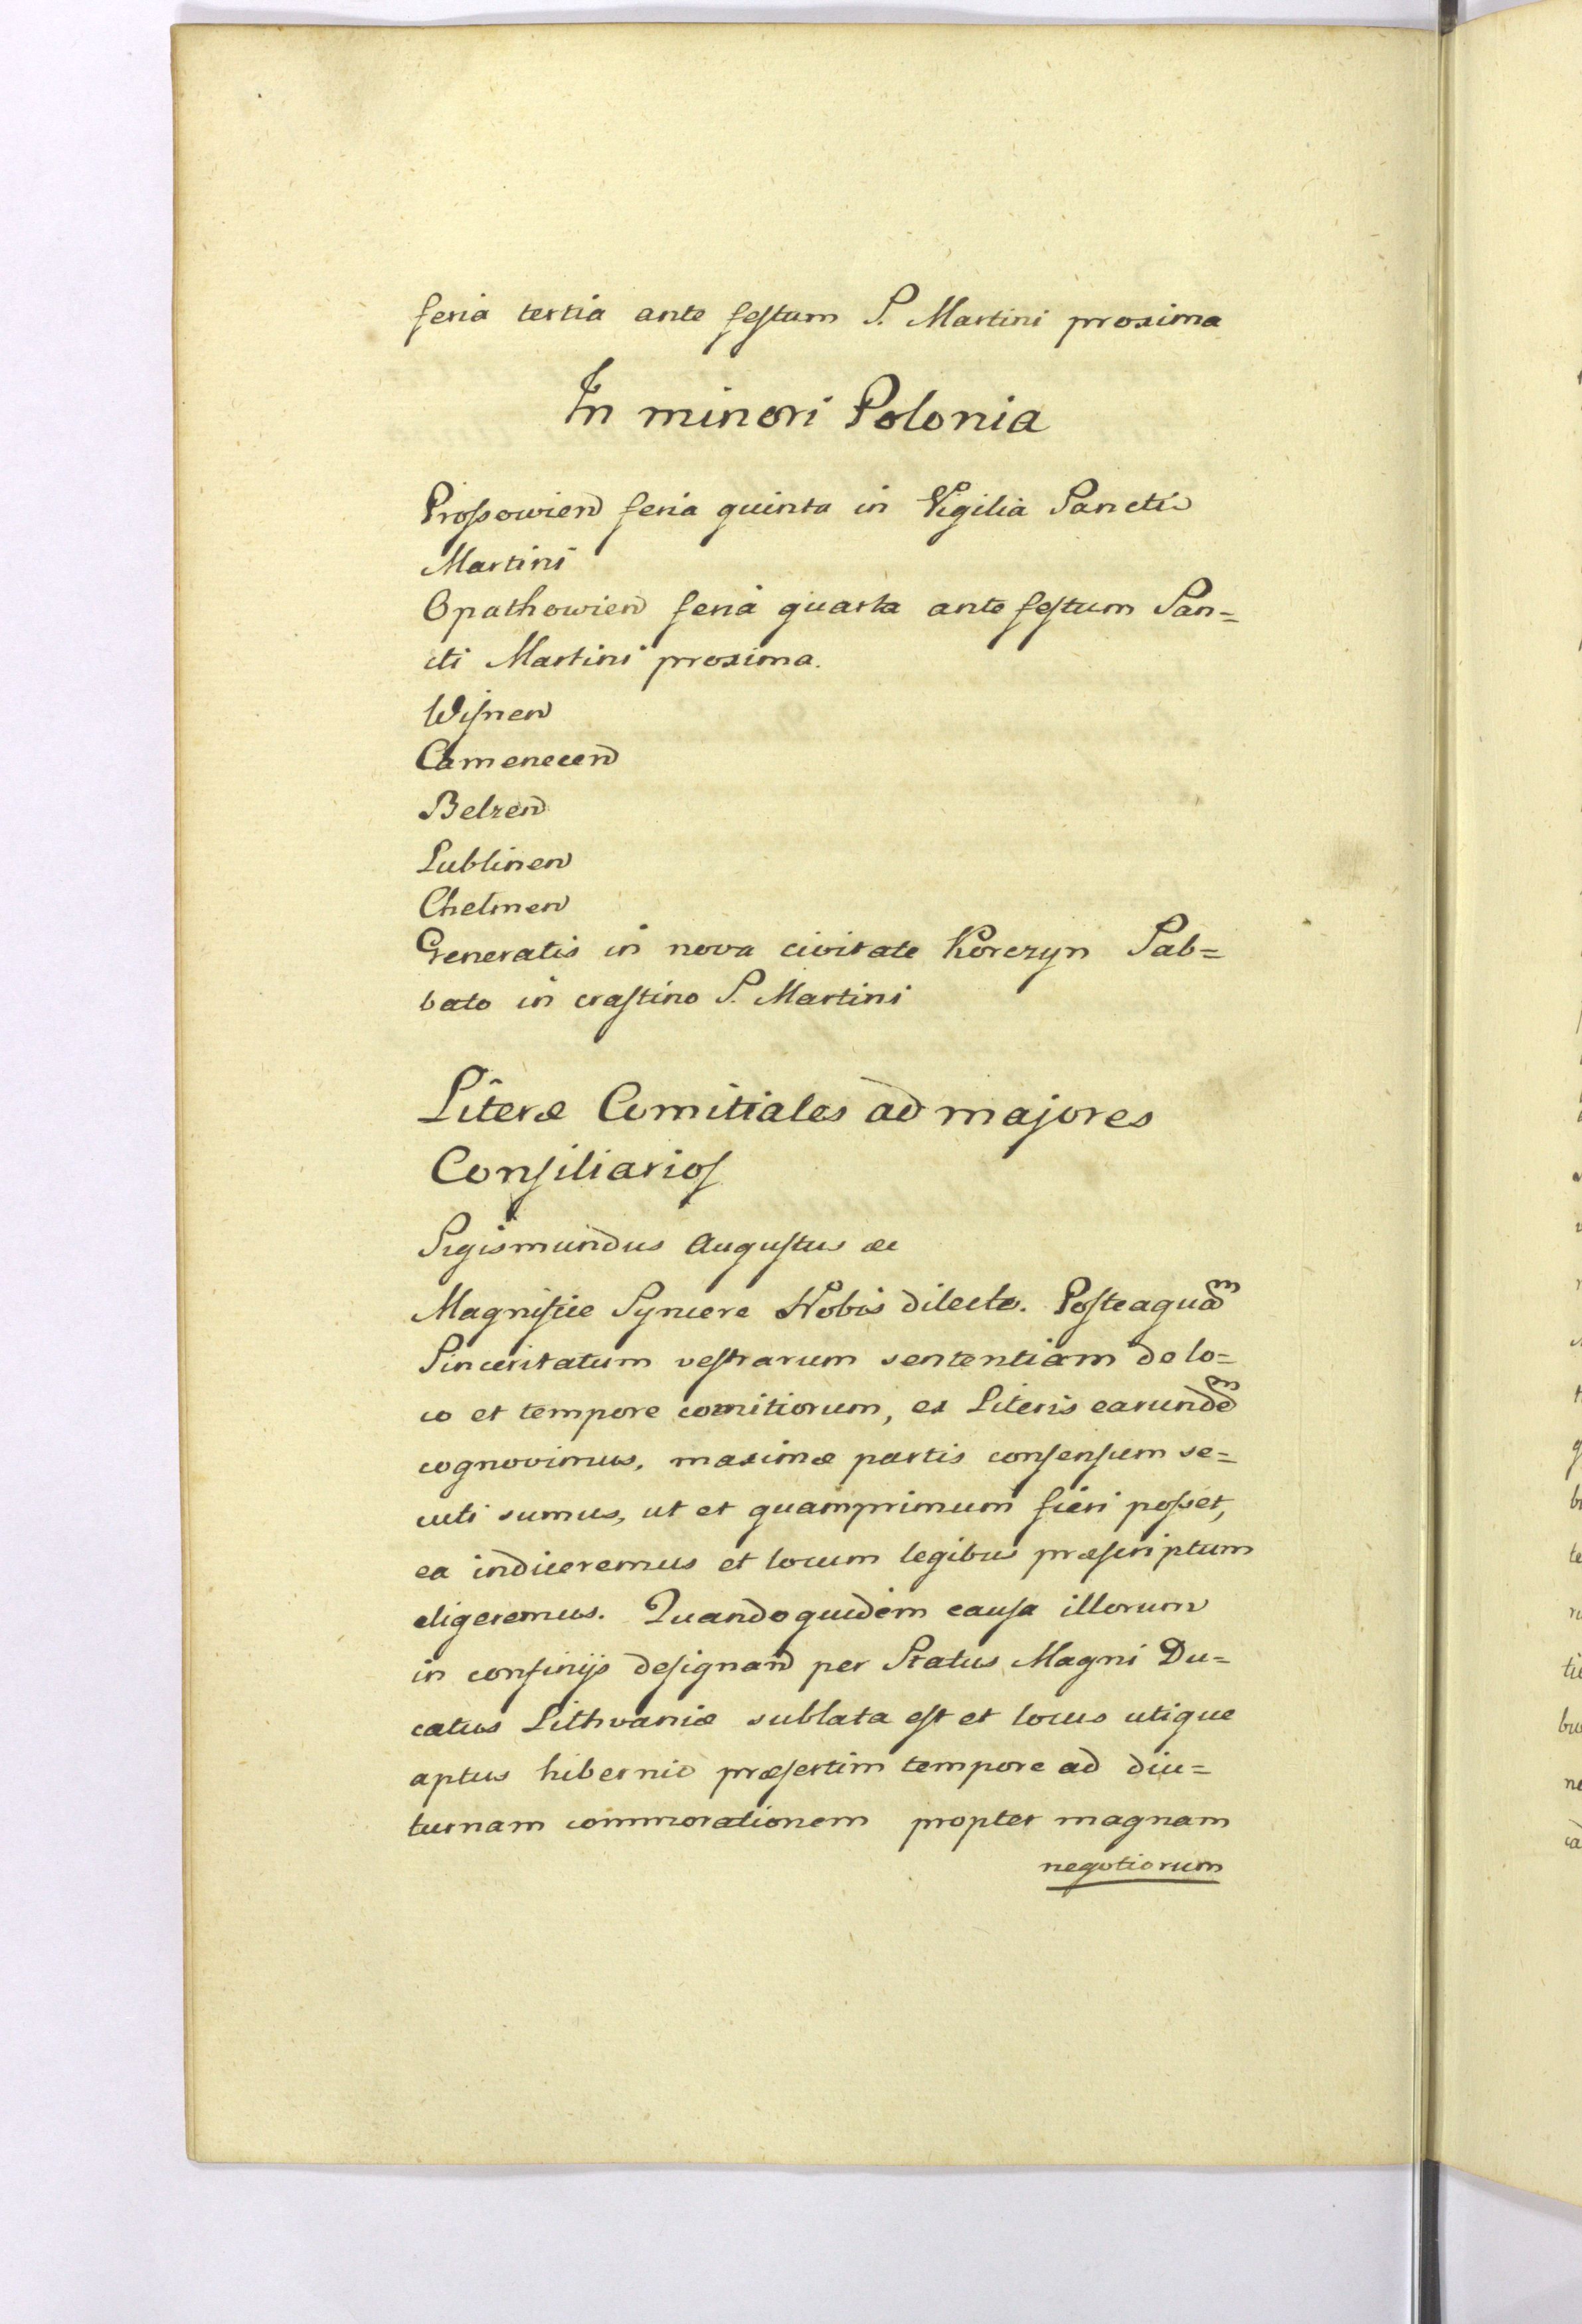 feria tertia ante festum S. Martini proxima
In minori Polonia
Prossowien feria quinta in Vigilia Sancti
Martini
Opathowien feria quarta ante festum San=
cti Martini proxima.
Wisnen
Camenecen
Belzen
Lublinen
Chelmen
Generalis in nova civitate Korczyn Sab=
bato in crastino S. Martini
Literæ Comitiales ad majores
Consiliarios
Sigismundus Augustus &c
Magnifice Syncere Nobis dilecte. Posteaquam
Sinceritatum vestrarum sententiam de lo=
co et tempore comitiorum, ex Literis earundem
cognovimus, maximæ partis consensum se=
cuti sumus, ut et quamprimum fieri posset,
ea indiceremus et locum legibus præscriptum
eligeremus. Quandoquidem causa illorum
in confinijs designand per Status Magni Du=
catus Lithvaniæ sublata est et locus utique
aptus hiberno præsertim tempore ad diu=
turnam commorationem propter magnam
negotiorum